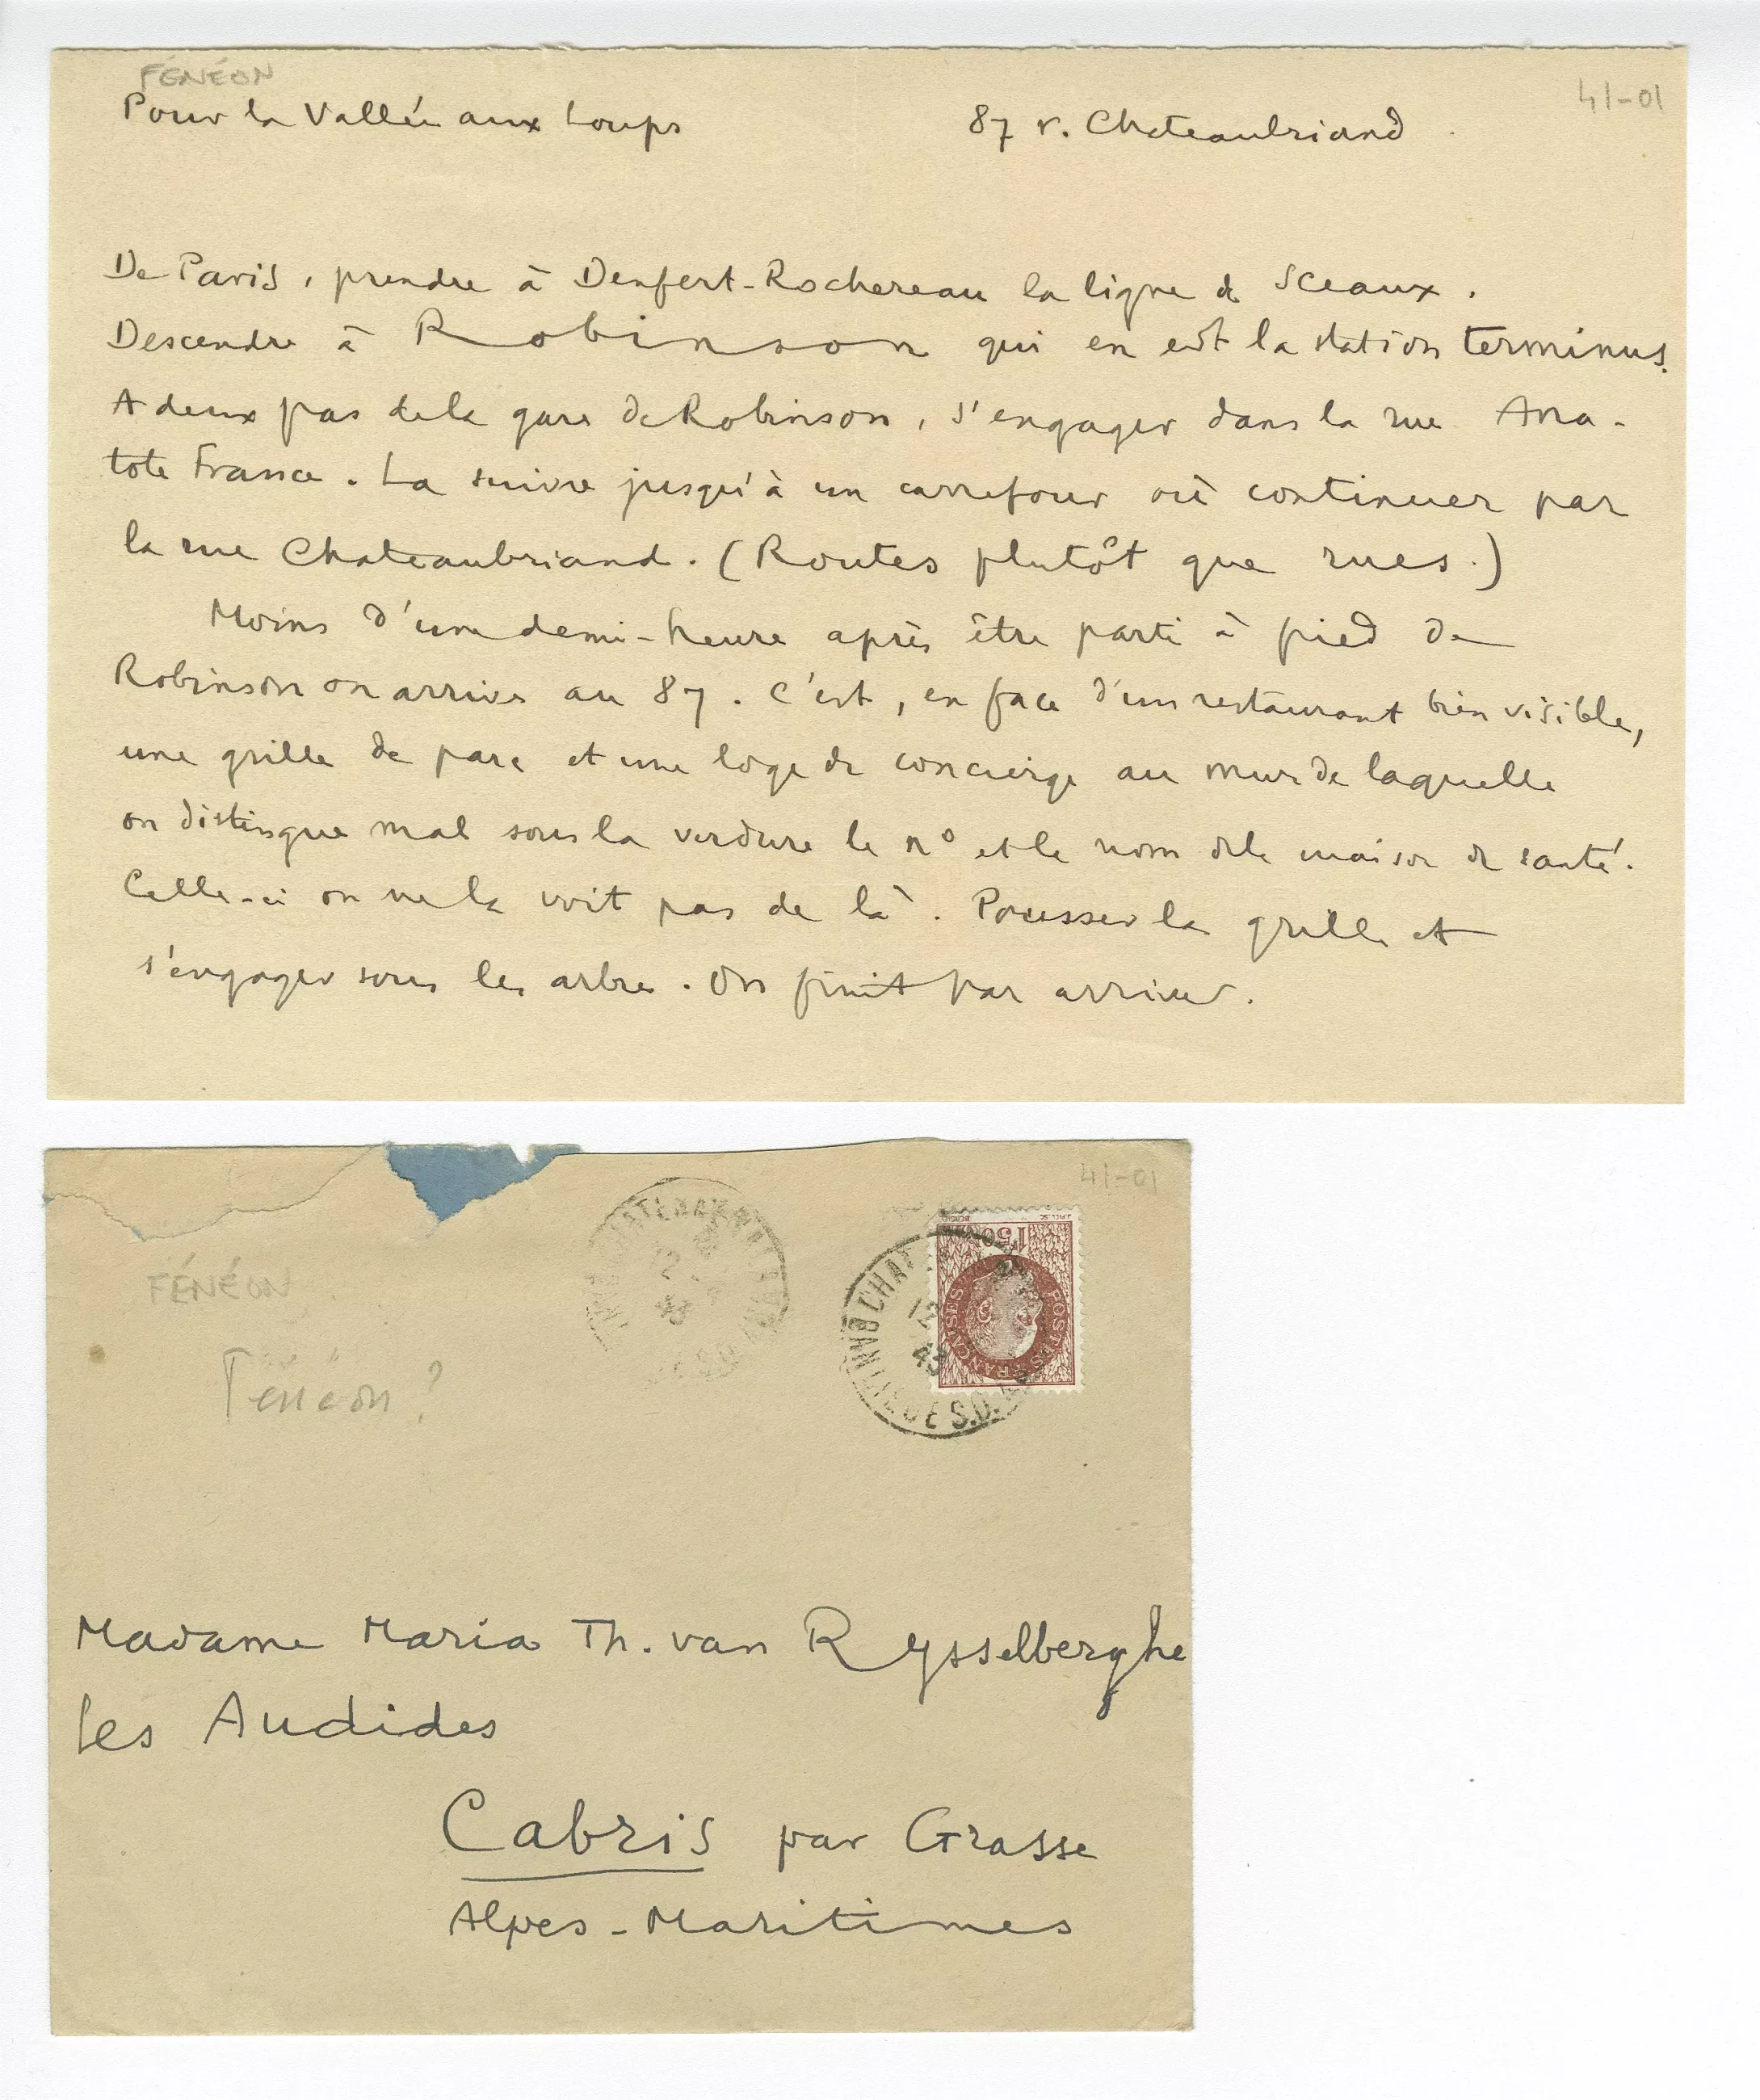 FÉNÉON
41-01
Pour la Vallée aux Loups
87 r. Chateaubriand
De Paris, prendre à Denfert-Rochereau la ligne de Sceaux.
Descendre à Robinson qui en est la station terminus.
A deux pas de la gare de Robinson, s'engager dans la rue Ana-
tole France. La suivre jusqu'à un carrefour où continuer par
la rue Chateaubriand. (Routes plutôt que rues.)
Moins d'une demi-heure après être parti à pied de
Robinson on arrive au 87. C'est, en face d'un restaurant bien visible,
une grille de parc et une loge de concierge au mur de laquelle
on distingue mal sous la verdure le n° et le nom de la maison de santé.
Celle-ci on ne la voit pas de là. Pousser la grille et
s'engager sous les arbres. On finit par arriver.
41-01
FÉNÉON
Fénéon?
12
43
12
43
S.D.
1F50
POSTES FRANÇAISES
Madame Maria Th. van Rysselberghe
les Audides
Cabris par Grasse
Alpes-Maritimes